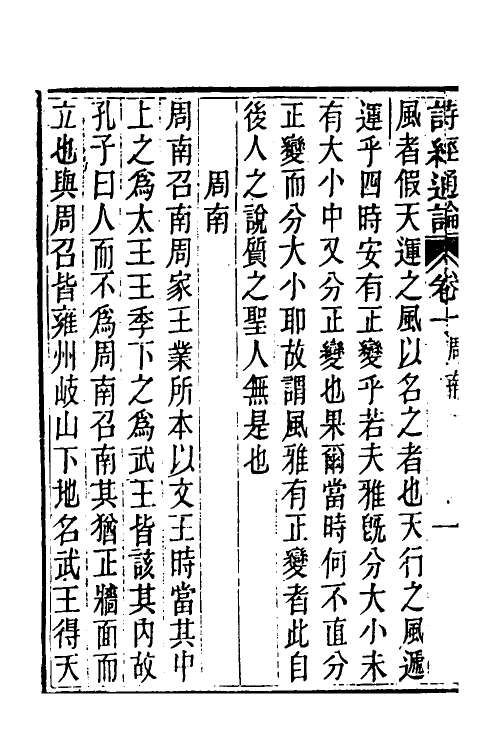 詩經通論 卷一 周南 一
風者假天運之風以名之者也天行之風遞
運乎四時安有正變乎若夫雅旣分大小未
有大小中又分正變也果爾當時何不直分
正變而分大小耶故謂風雅有正變者此自
後人之說質之聖人無是也
周南
周南召南周家王業所本以文王時當其中
上之爲太王王季下之爲武王皆該其內故
孔子曰人而不爲周南召南其猶正牆面而
立也與周召皆雍州岐山下地名武王得天